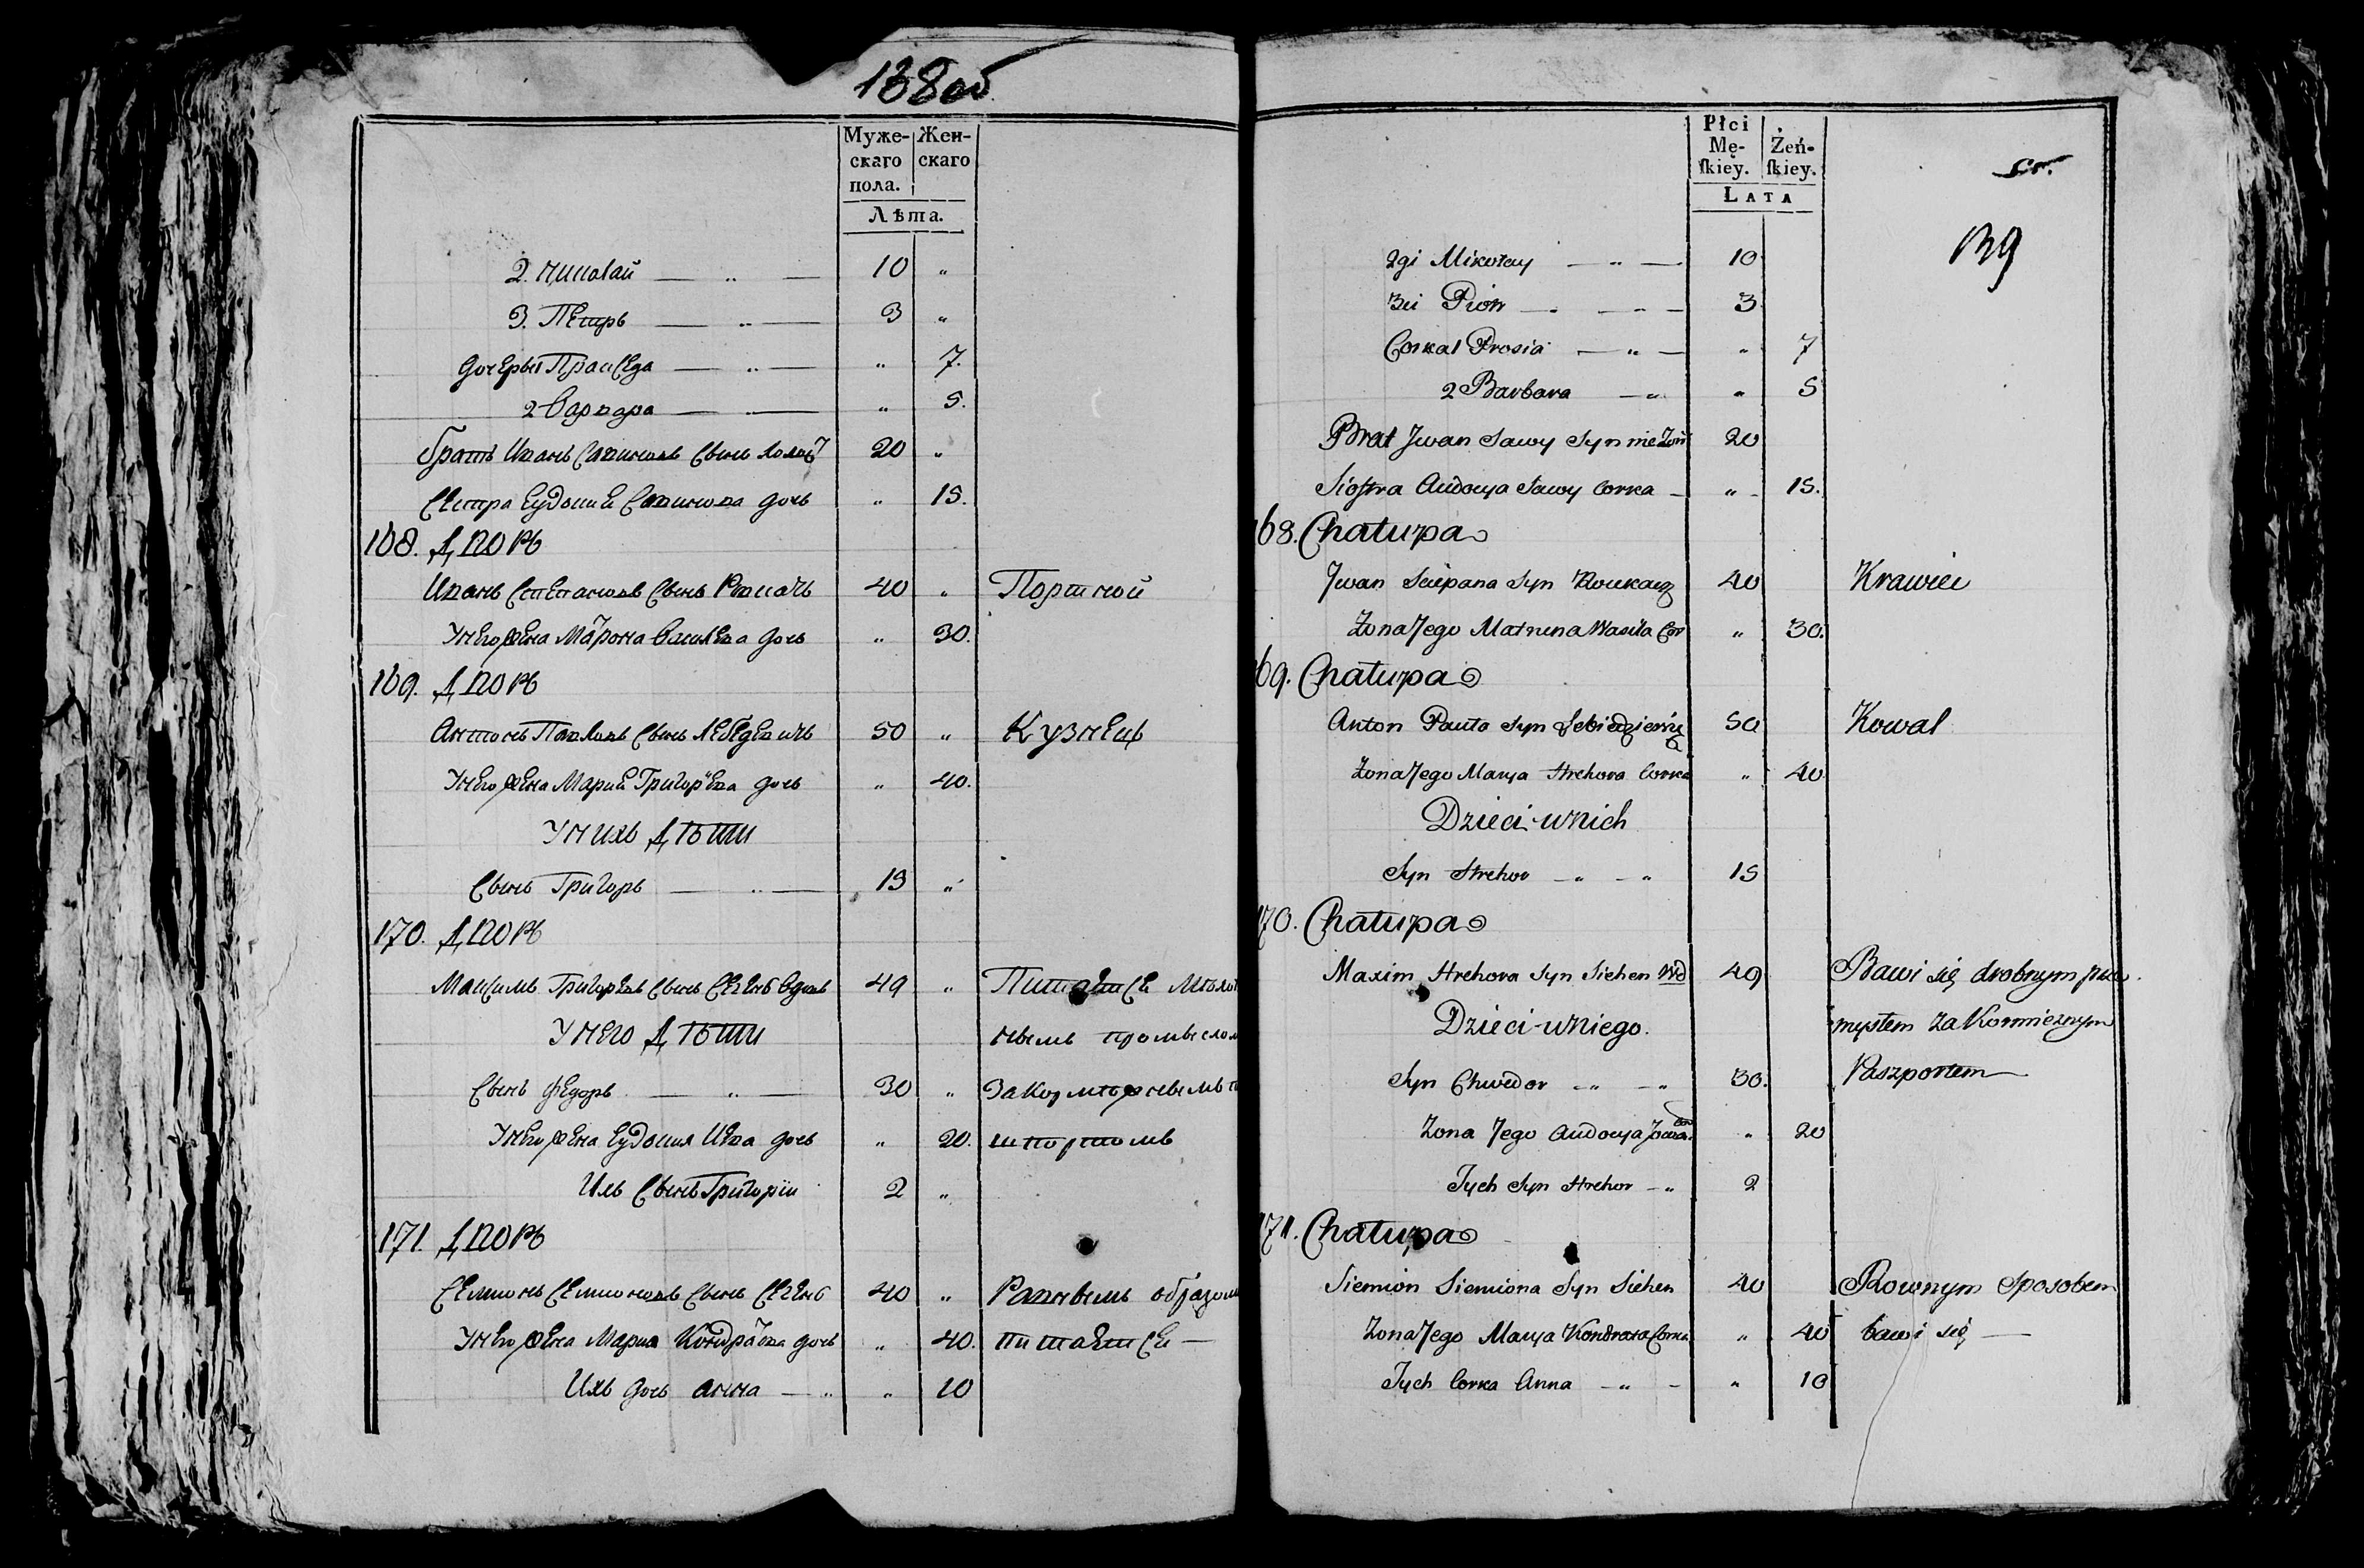 138об
Муже-
скаго
пола.
Жен-
скаго
Лѣта.
2. Николай — „ — 10 „
3. Петръ — „ — 3 „
дочеры Пракседа — „ — „ 7.
2 Варвара — „ — „ 5.
братъ Иванъ Савиновъ сынъ холос 20 „
сестра Еудокия Савинова дочь „ 15.
168. Дворъ
Иванъ Степановъ сынъ 40 „ Портной
У него жена Матрона Васильева дочь „ 30.
169. Дворъ
Антонъ Павловъ сынъ Лебедевичъ 50 „ Кузнец
У него жена Мария Григорьева дочь „ 40.
У нихъ Дѣти
Сынъ Григоръ — „ — 15 „
170. Дворъ
Максимъ Григорьевъ сынъ Сегень вдовъ 49 „ Питается мѣлоч
У него Дѣти нымъ промыслом
Сынъ Федоръ — „ — 30 „ за кормежнымъ п
У него жена Еудокия Ива дочь „ 20. шпортомъ
Ихъ сынъ Григорiи 2 „
171. Дворъ
Семионъ Семионовъ сынъ Сегень 40 „ Равнымъ образом
У него жена Мариа Кондратьева дочь „ 40. питается —
Ихъ дочь Анна — „ „ 10
Płci
Mę-
ſkiey.
Żeń-
ſkiey.
LATA
139
2gi Mikołay — „ — 10
3ci Piotr — „ — 3
Corka 1 Prosia — „ — „ 7
2 Barbara — „ „ 5
Brat Jwan Sawy Syn nie Żon 20
Siostra Audocya Sawy Corka — „ 15.
168. Chałupa
Jwan Sciepana Syn 40 Krawiec
Zona Jego Matruna Wasila Cor „ 30.
169. Chałupa
Anton Pauła Syn Lebiedziewicz 50 Kowal
Zona Jego Marya Hrehora Corka „ 40
Dzieci u nich
Syn Hrehor — „ — „ 15
170. Chałupa
Maxim Hrehora Syn Siehen Wd 49 Bawi się drobnym prze
Dzieci u niego. mysłem za Kormieznym
Syn Chwedor — „ — „ 30. Paszportem
Zona Jego Audocya Jwana Cor „ 20
Jych Syn Hrehor — „ 2
171. Chałupa
Siemion Siemiona Syn Siehen 40 Rownym Sposobem
Zona Jego Marya Kondrata Corka „ 40 bawi się —
Jych Corka Anna — „ — „ 10